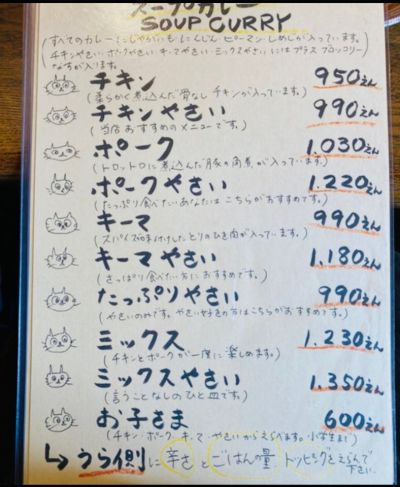 スープカレー
SOUP CURRY
(すべてのカレーにじゃがいも・にんじん・ピーマン・しめじが入っています。
チキンやさい・ポークやさい・キーマやさい・ミックスやさいにはプラス ブロッコリー
なすが入ります。
チキン 950えん
(柔らかく煮込んだ骨なしチキンが入っています。)
チキンやさい 990えん
(当店おすすめのメニューです。)
ポーク 1.030えん
(トロットロに煮込んだ豚の角煮が入っています。)
ポークやさい 1.220えん
(たっぷり食べたいあなたはこちらがおすすめです。)
キーマ 990えん
(スパイスで味付けしたとりのひき肉が入っています。)
キーマやさい 1.180えん
(さっぱり食べたい方におすすめです。)
たっぷりやさい 990えん
(やさいのみです。やさい好きの方はこちらがおすすめです。)
ミックス 1.230えん
(チキンとポークが一度に楽しめます。)
ミックスやさい 1.350えん
(言うことなしのひと皿です。)
お子さま 600えん
(チキン・ポーク・キーマ・やさいからえらべます。小学生まで)
↳うら側に辛さとごはんの量、トッピングをえらんで
下さい。